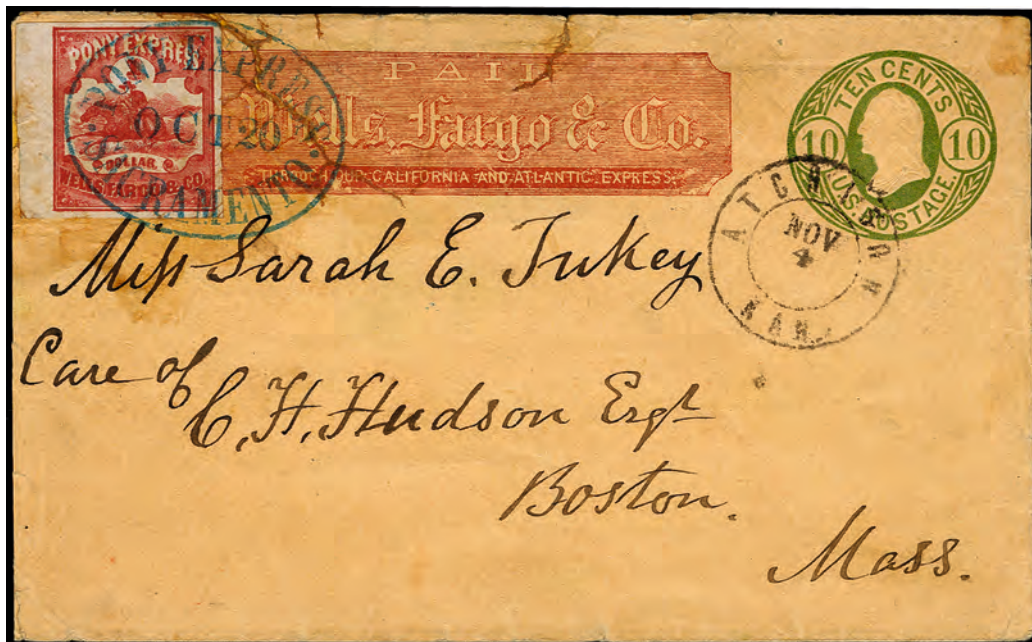 PONY EXPRESS
1
DOLLAR.
WELLS, FARGO & CO.
PONY EXPRESS.
OCT 20
SACRAMENTO.
PAID
Wells, Fargo & Co.
THROUGH OUR CALIFORNIA AND ATLANTIC EXPRESS.
TEN CENTS
10 10
U.S. POSTAGE
ATCHISON
NOV
4
KAN.
Miss Sarah E. Tukey
Care of
C. H. Hudson Esqr
Boston.
Mass.